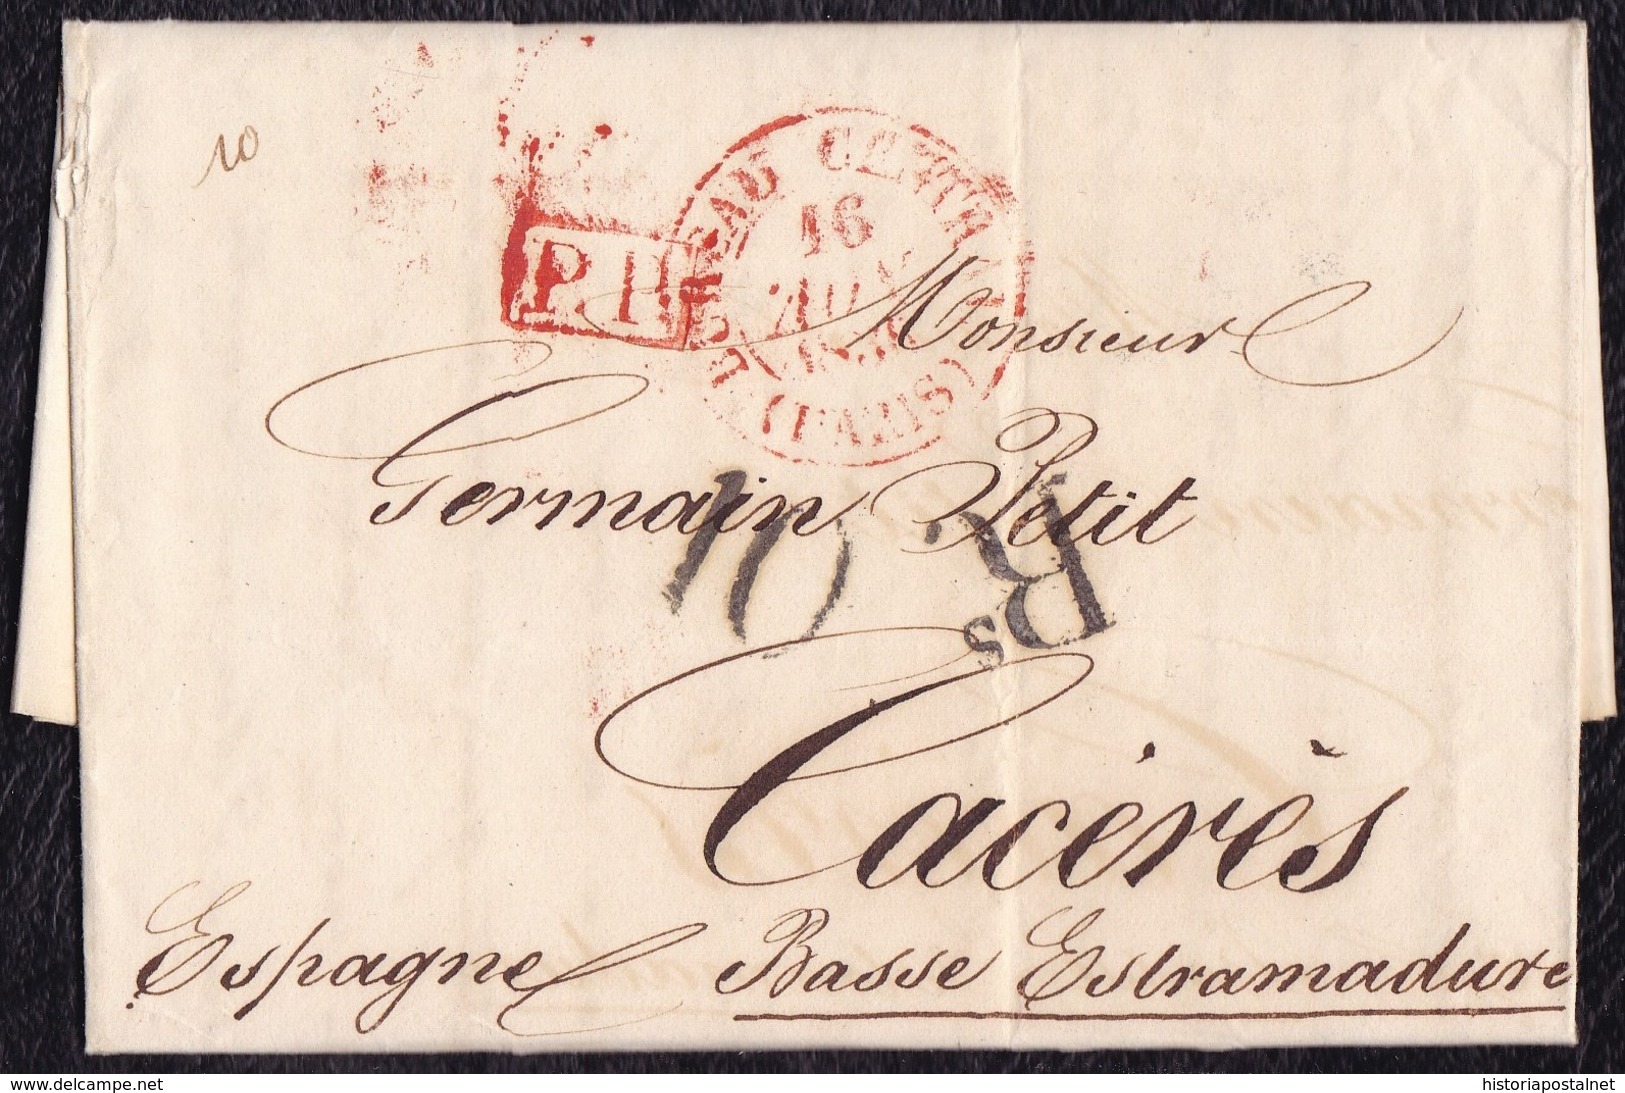 10
BUREAU CENTRAL
16
(PARIS)
P.P.
Monsieur
Germain Petit
10 Rs
Cacérès
Espagne Basse Estramadure
delcampe.net
historiapostalnet